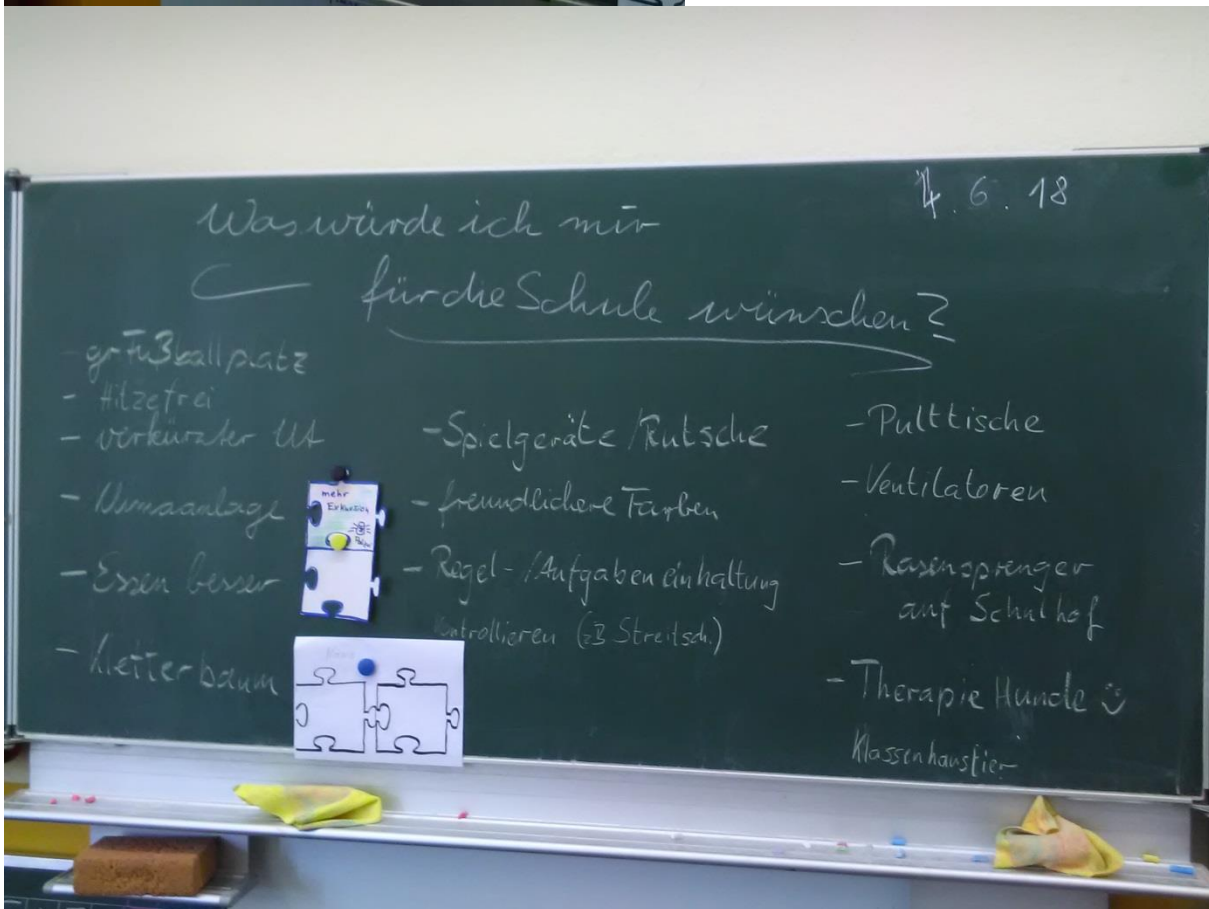 14.6.18
Was würde ich mir
für die Schule wünschen?
- gr Fußballplatz
- Hitzefrei
- verkürzter Ut
- Klimaanlage
- Essen besser
- Kletterbaum
mehr
Exkursion
- Spielgeräte/Rutsche
- freundlichere Farben
- Regel-/Aufgabeneinhaltung
kontrollieren (zB Streitsch.)
- Pulttische
- Ventilatoren
- Rasensprenger
auf Schulhof
- Therapie Hunde
Klassenhaustier